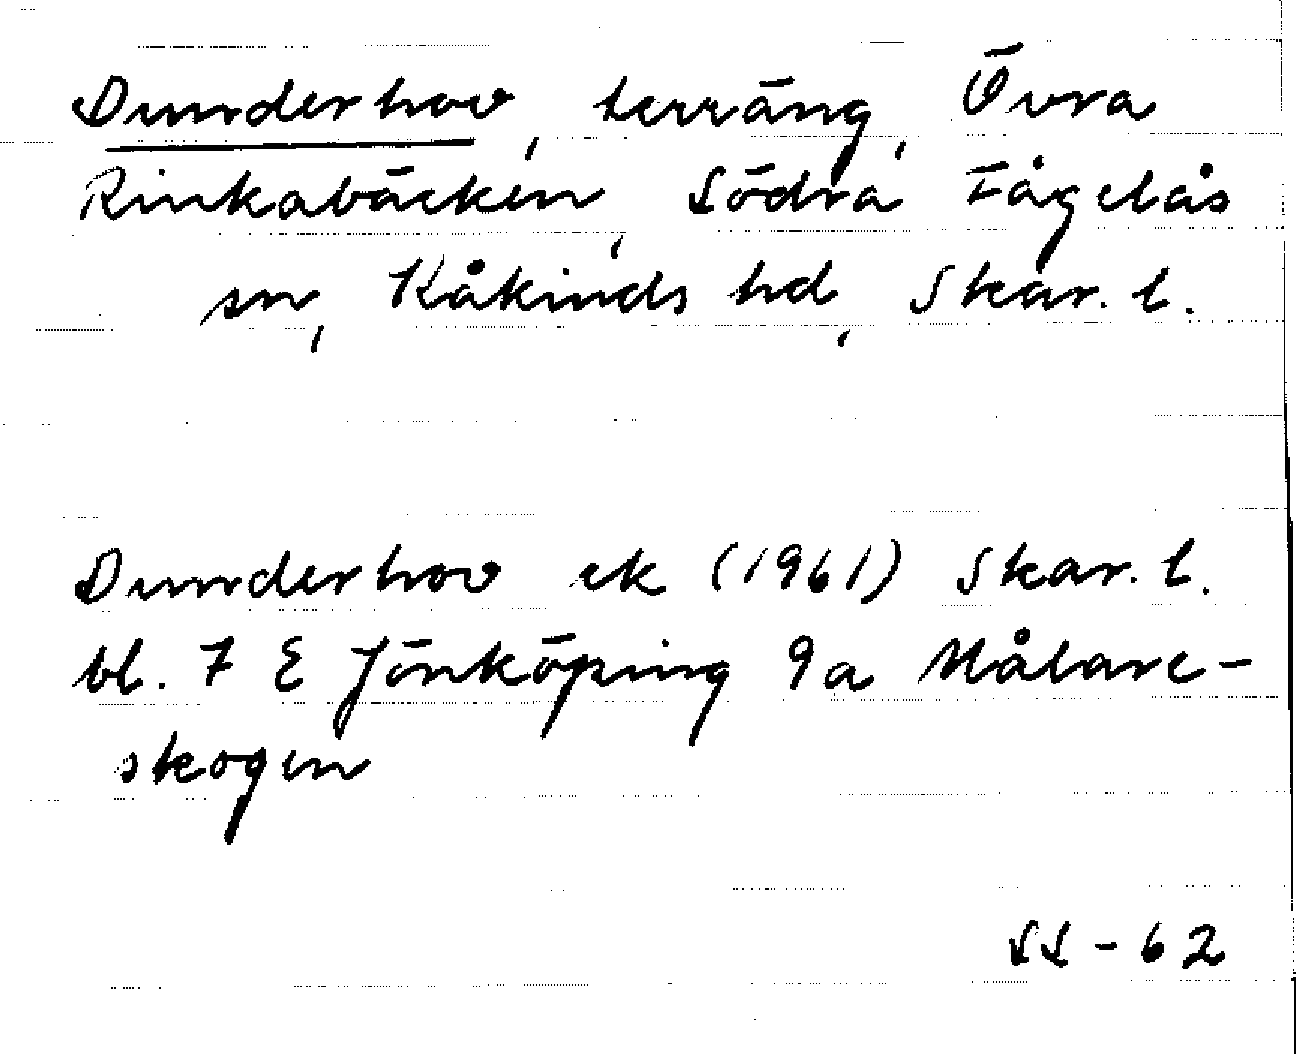 Dunderhov, terräng, Övra
Rinkabäcken, Södra Fågelås
sn, Kåkinds hd, Skar. l.
Dunderhov ek (1961) Skar. l.
bl. 7 E Jönköping 9a Målare-
skogen
SS - 62